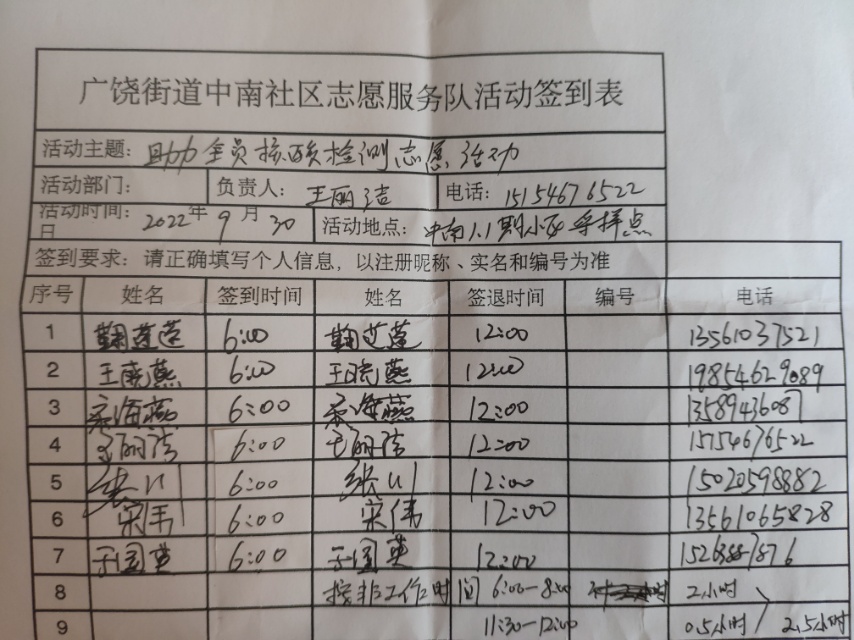 广饶街道中南社区志愿服务队活动签到表
活动主题：助力全员核酸检测志愿活动
活动部门： 负责人：王丽洁 电话：15154676522
活动时间：2022年9月30日 活动地点：中南1.1期小区采样点
签到要求：请正确填写个人信息，以注册昵称、实名和编号为准
序号 姓名 签到时间 姓名 签退时间 编号 电话
1 6:00 12:00 13561037521
2 王晓燕 6:00 王晓燕 12:00 19854629089
3 海燕 6:00 海燕 12:00 13589436087
4 王丽洁 6:00 王丽洁 12:00 15154676522
5 张川 6:00 张川 12:00 15020598882
6 宋伟 6:00 宋伟 12:00 13561065828
7 于国英 6:00 于国英 12:00
8 按非工作时间 6:00-8:00 2小时
9 11:30-12:00 0.5小时 2.5小时